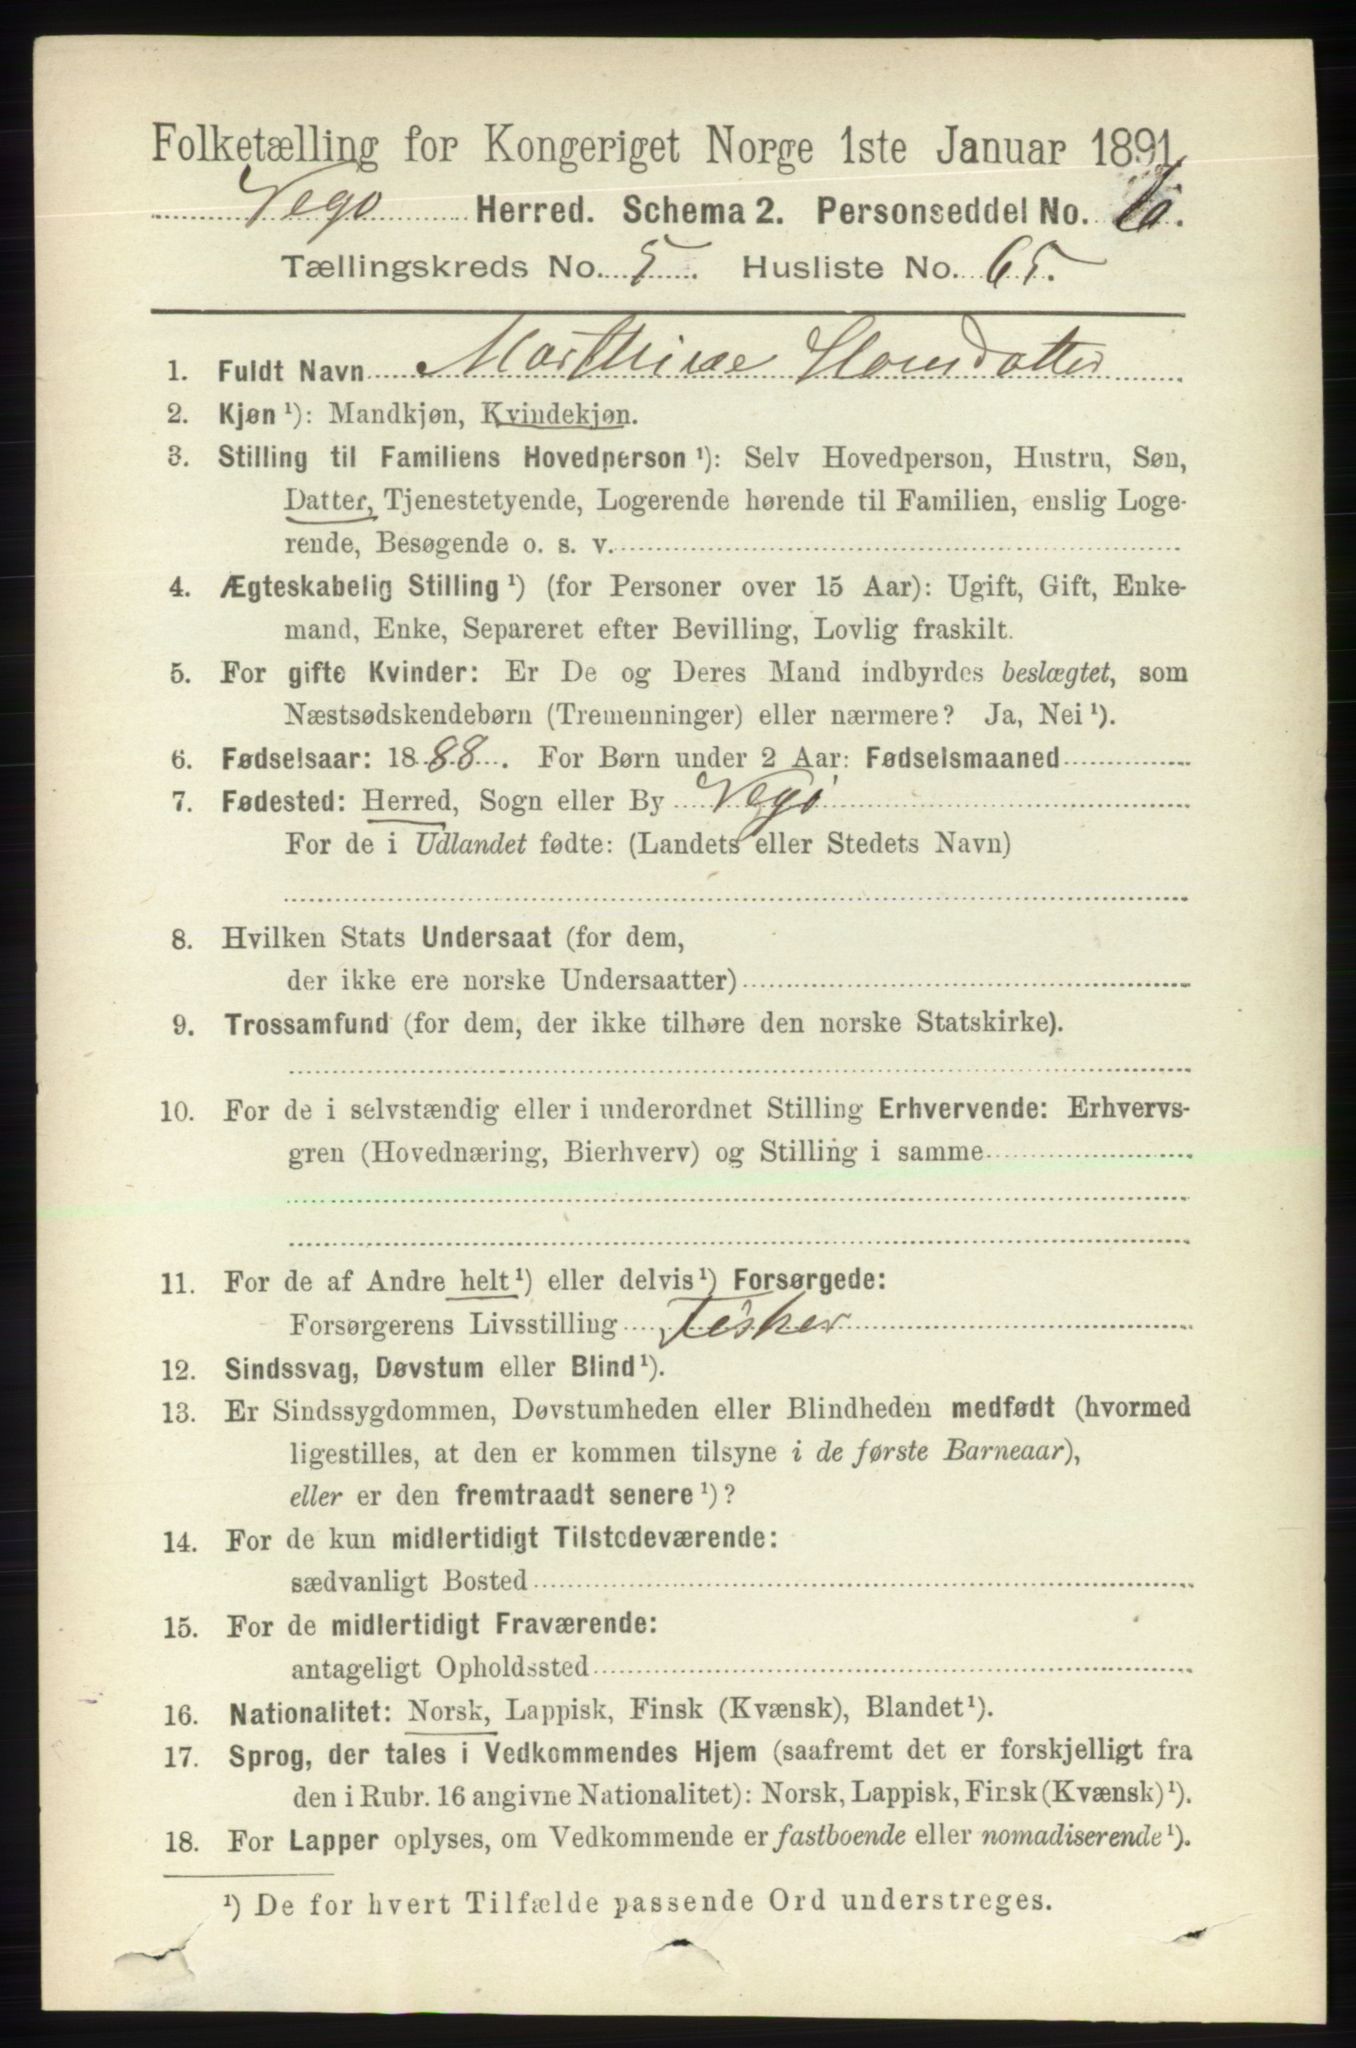 Folketælling for Kongeriget Norge 1ste Januar 1891.
Vegø Herred. Schema 2. Personseddel No.
Tællingskreds No. 5. Husliste No. 65.
1. Fuldt Navn
2. Kjøn ¹): Mandkjøn, Kvindekjøn.
3. Stilling til Familiens Hovedperson ¹): Selv Hovedperson, Hustru, Søn,
Datter, Tjenestetyende, Logerende hørende til Familien, enslig Loge-
rende, Besøgende o. s. v.
4. Ægteskabelig Stilling ¹) (for Personer over 15 Aar): Ugift, Gift, Enke-
mand, Enke, Separeret efter Bevilling, Lovlig fraskilt.
5. For gifte Kvinder: Er De og Deres Mand indbyrdes beslægtet, som
Næstsødskendebørn (Tremenninger) eller nærmere? Ja, Nei ¹).
6. Fødselsaar: 1888. For Børn under 2 Aar: Fødselsmaaned
7. Fødested: Herred, Sogn eller By Vegø
For de i Udlandet fødte: (Landets eller Stedets Navn)
8. Hvilken Stats Undersaat (for dem,
der ikke ere norske Undersaatter)
9. Trossamfund (for dem, der ikke tilhøre den norske Statskirke).
10. For de i selvstændig eller i underordnet Stilling Erhvervende: Erhvervs-
gren (Hovednæring, Bierhverv) og Stilling i samme
11. For de af Andre helt ¹) eller delvis ¹) Forsørgede:
Forsørgerens Livsstilling Fisker
12. Sindssvag, Døvstum eller Blind ¹).
13. Er Sindssygdommen, Døvstumheden eller Blindheden medfødt (hvormed
ligestilles, at den er kommen tilsyne i de første Barneaar),
eller er den fremtraadt senere ¹)?
14. For de kun midlertidigt Tilstedeværende:
sædvanligt Bosted
15. For de midlertidigt Fraværende:
antageligt Opholdssted
16. Nationalitet: Norsk, Lappisk, Finsk (Kvænsk), Blandet ¹).
17. Sprog, der tales i Vedkommendes Hjem (saafremt det er forskjelligt fra
den i Rubr. 16 angivne Nationalitet): Norsk, Lappisk, Finsk (Kvænsk) ¹).
18. For Lapper oplyses, om Vedkommende er fastboende eller nomadiserende ¹).
¹) De for hvert Tilfælde passende Ord understreges.